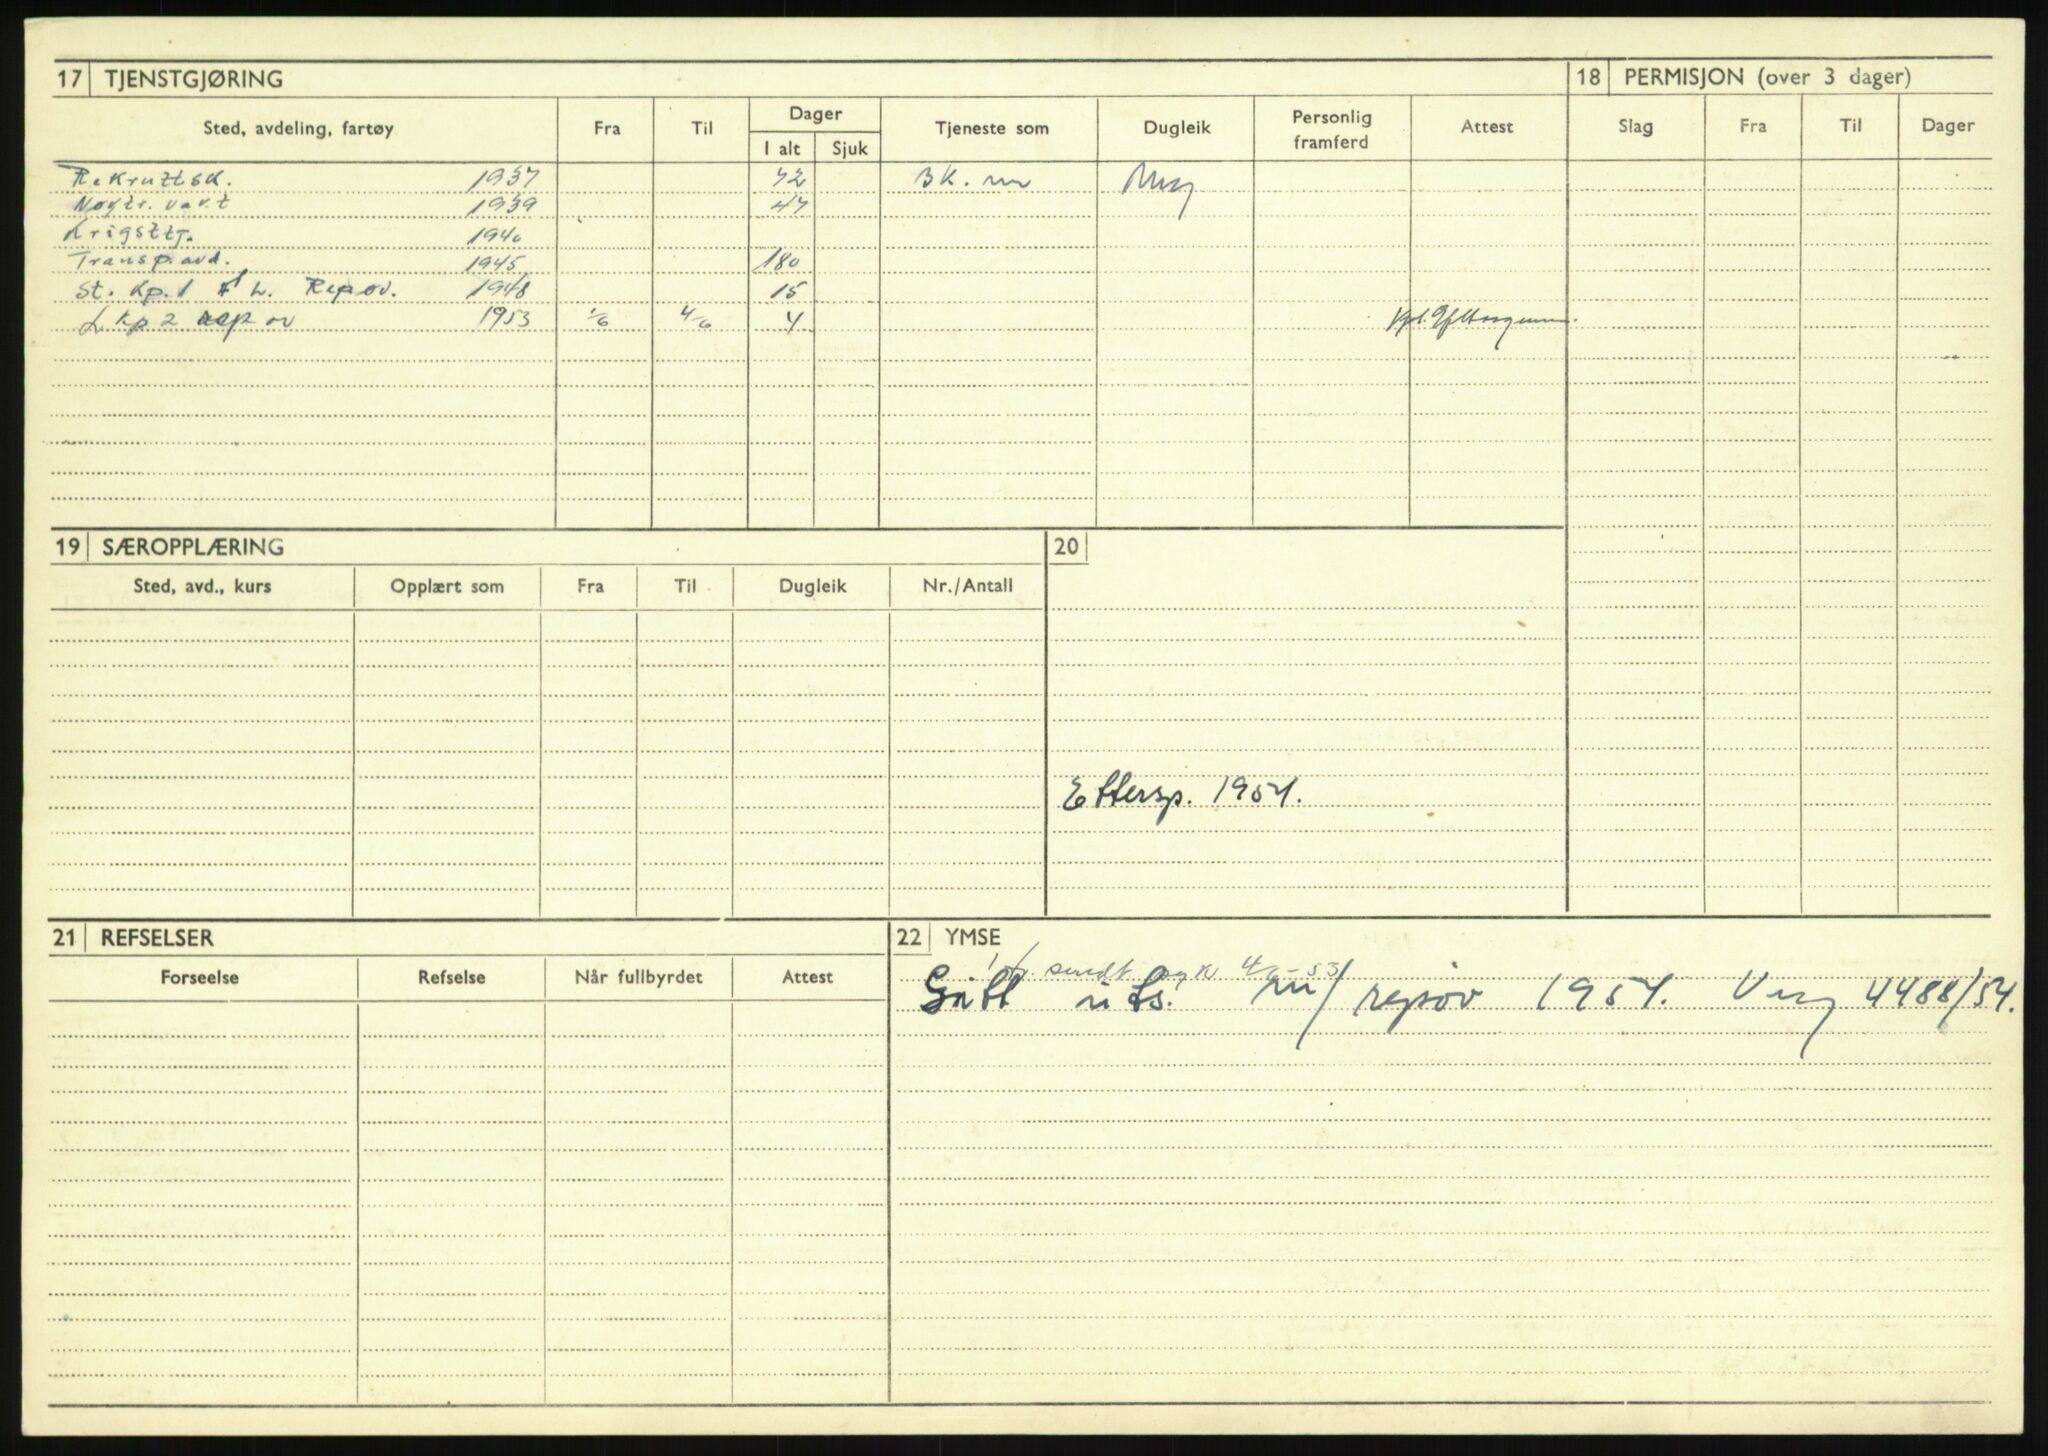 17 TJENSTGJØRING
18 PERMISJON (over 3 dager)
Sted, avdeling, fartøy Fra Til Dager Tjeneste som Dugleik Personlig framferd Attest Slag Fra Til Dager
I alt Sjuk
Rekruttsk. 1937 72 BK. m Meg
Nøytr. vakt 1939 47
Krigsttj. 1940
Transp. avd. 1945 180
St. Kp. 1 L. Repøv. 1948 15
L Kp 2 repøv 1953 1/6 4/6 4
19 SÆROPPLÆRING
20
Sted, avd., kurs Opplært som Fra Til Dugleik Nr./Antall
Ettersp. 1954.
21 REFSELSER
22 YMSE
Forseelse Refselse Når fullbyrdet Attest
sendt syk 4/6-53
Gitt uts. m/repøv 1954. V 4488/54.